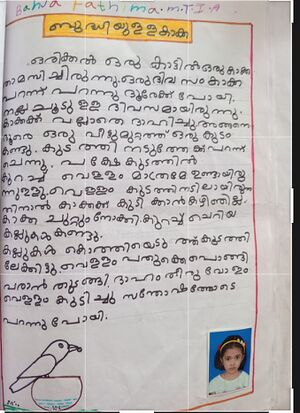 Bahja Fathima.m.T.I.A
ബുദ്ധിയുള്ളകാക്ക
ഒരിക്കൽ ഒരു കാട്ടിൽ ഒരു കാക്ക
താമസിച്ചിരുന്നു. ഒരു ദിവസം കാക്ക
പറന്ന് പറന്നു ദൂരേക്ക് പോയി.
നല്ല ചൂടുള്ള ദിവസമായിരുന്നു.
കാക്കക്ക് വല്ലാതെ ദാഹിച്ചു. അങ്ങനെ
ദൂരെ ഒരു വീട്ടുമുറ്റത്ത് ഒരു കുടം
കണ്ടു. കുടത്തിനടുത്തേക്ക് പറന്ന്
ചെന്നു. പക്ഷേ കുടത്തിൽ
കുറച്ച് വെള്ളം മാത്രമേ ഉണ്ടായിരു
ന്നുള്ളൂ. വെള്ളം കുടത്തിനടിയിലായിരു
ന്നതിനാൽ കാക്കക്ക് കുടിക്കാൻ കഴിഞ്ഞില്ല.
കാക്ക ചുറ്റും നോക്കി. കുറച്ച് ചെറിയ
കല്ലുകൾ കണ്ടു.
കല്ലുകൾ കൊത്തിയെടുത്ത് കുടത്തി
ലേക്കിട്ടു. വെള്ളം പതുക്കെ പൊങ്ങി
വരാൻ തുടങ്ങി. ദാഹം തീരുവോളം
വെള്ളം കുടിച്ചു സന്തോഷത്തോടെ
പറന്നു പോയി.